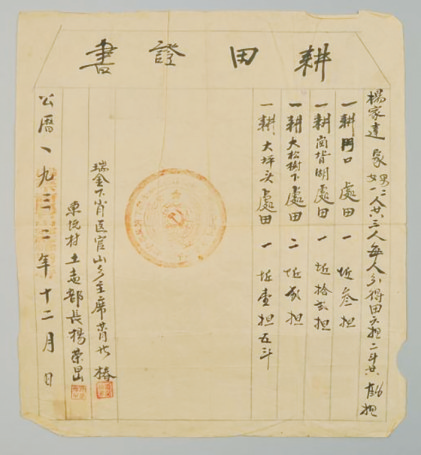 耕田證書
楊家達 家 男二人女一人共三人每人分得田六担二斗共 担
一耕門口 處田 一坵叁担
一耕崗背湖處田 一坵拾弍担
一耕大松樹下處田 二坵弍担
一耕大坪 處田 一坵壹担五斗
瑞金下肖區官山乡主席肖 椿
東坑村土委部長楊榮
公曆一九三二年十二月 日